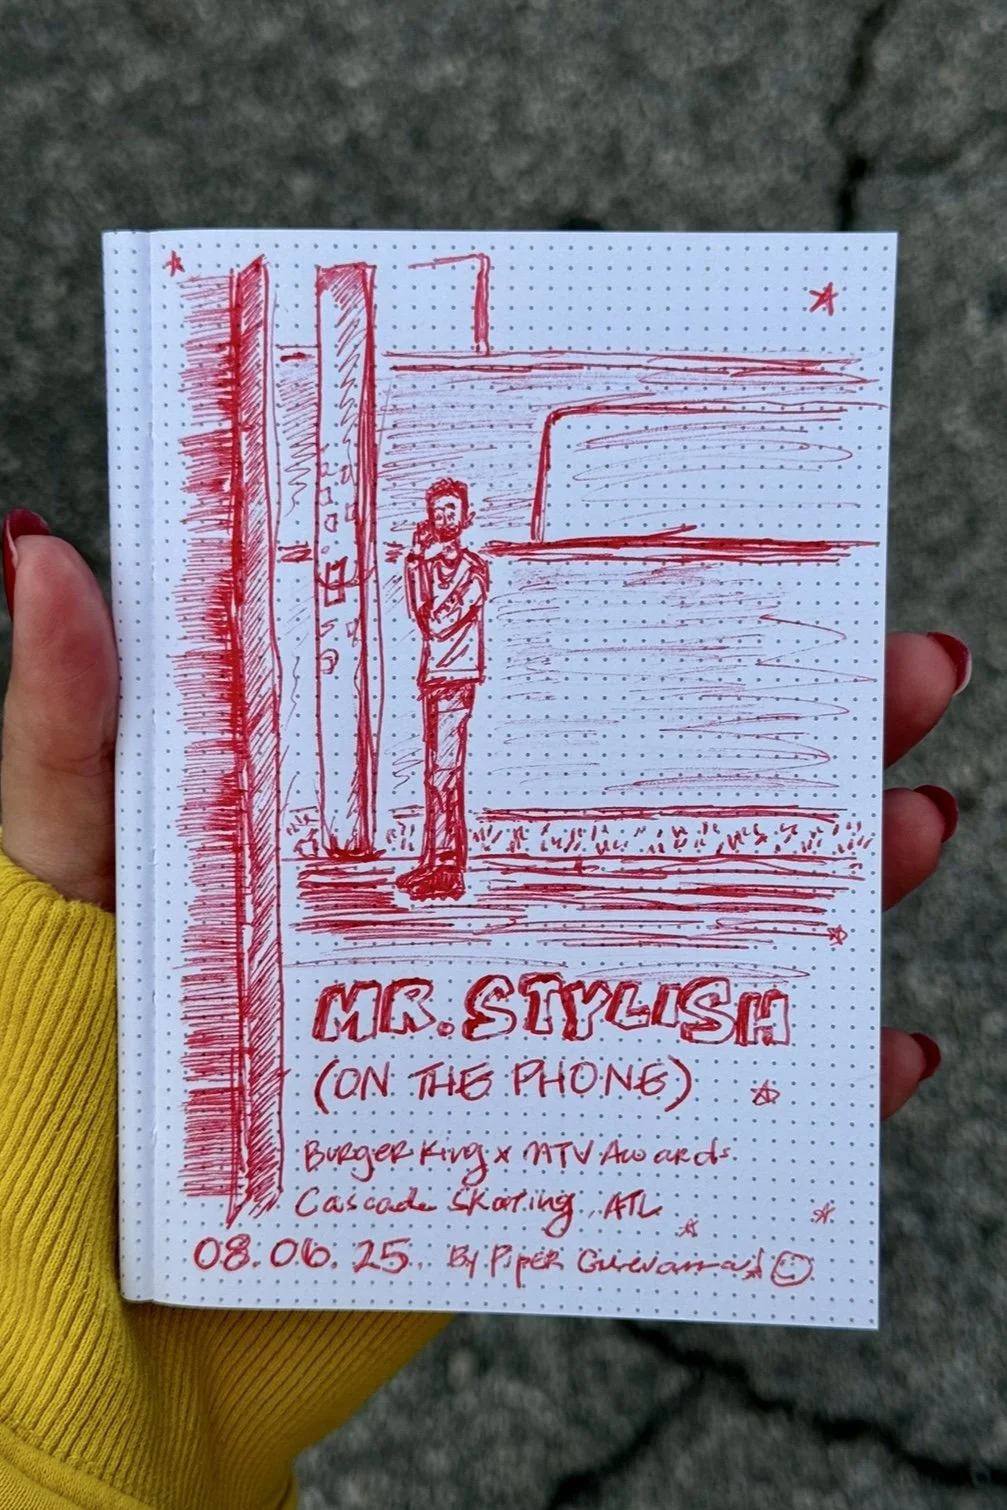 MR. STYLISH
(ON THE PHONE)
Burger King x MTV Awards
Cascade Skating, ATL
08.06.25. By Piper